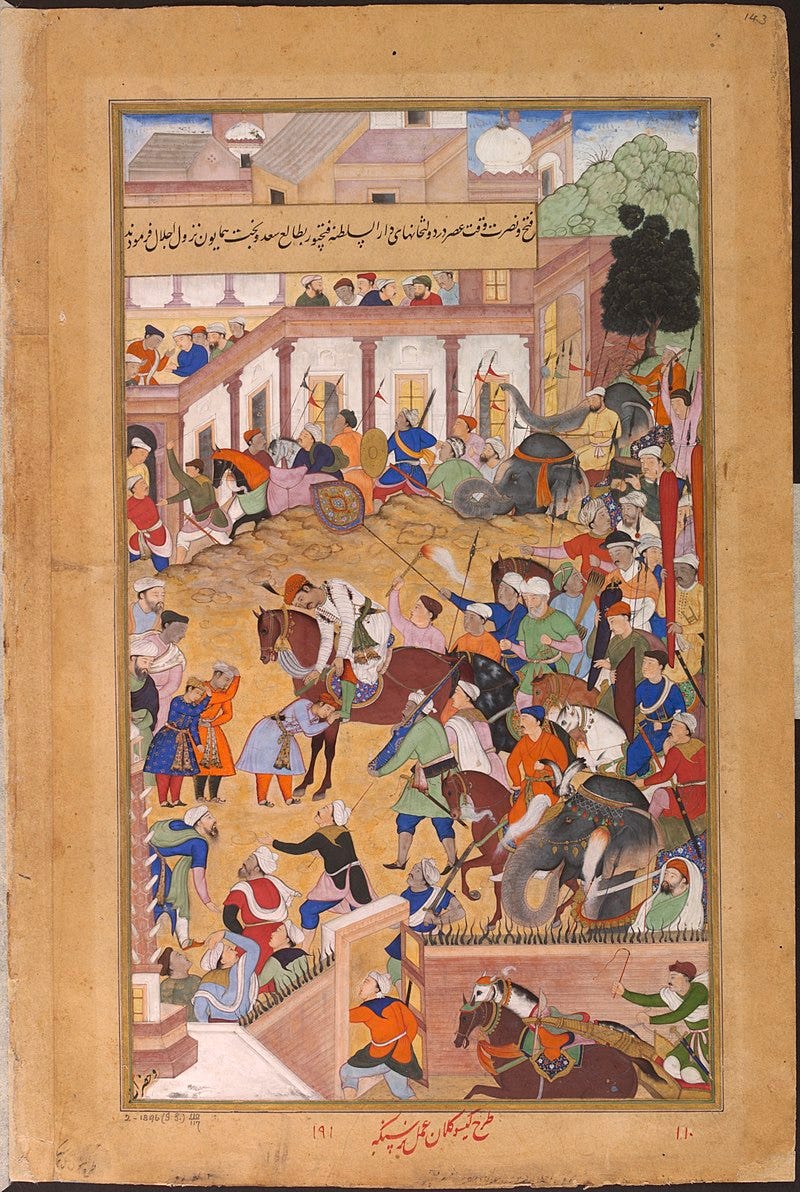 143
فتح و نصرت وقت عصر در دولتخانهای دار السلطنه فتحپور بطالع سعد و بخت همایون نزول اجلال فرمودند
2-1896 (I.S.) 110/117
طرح کیسو کلان عمل نرسینگه
۱۹۱
۱۱۰